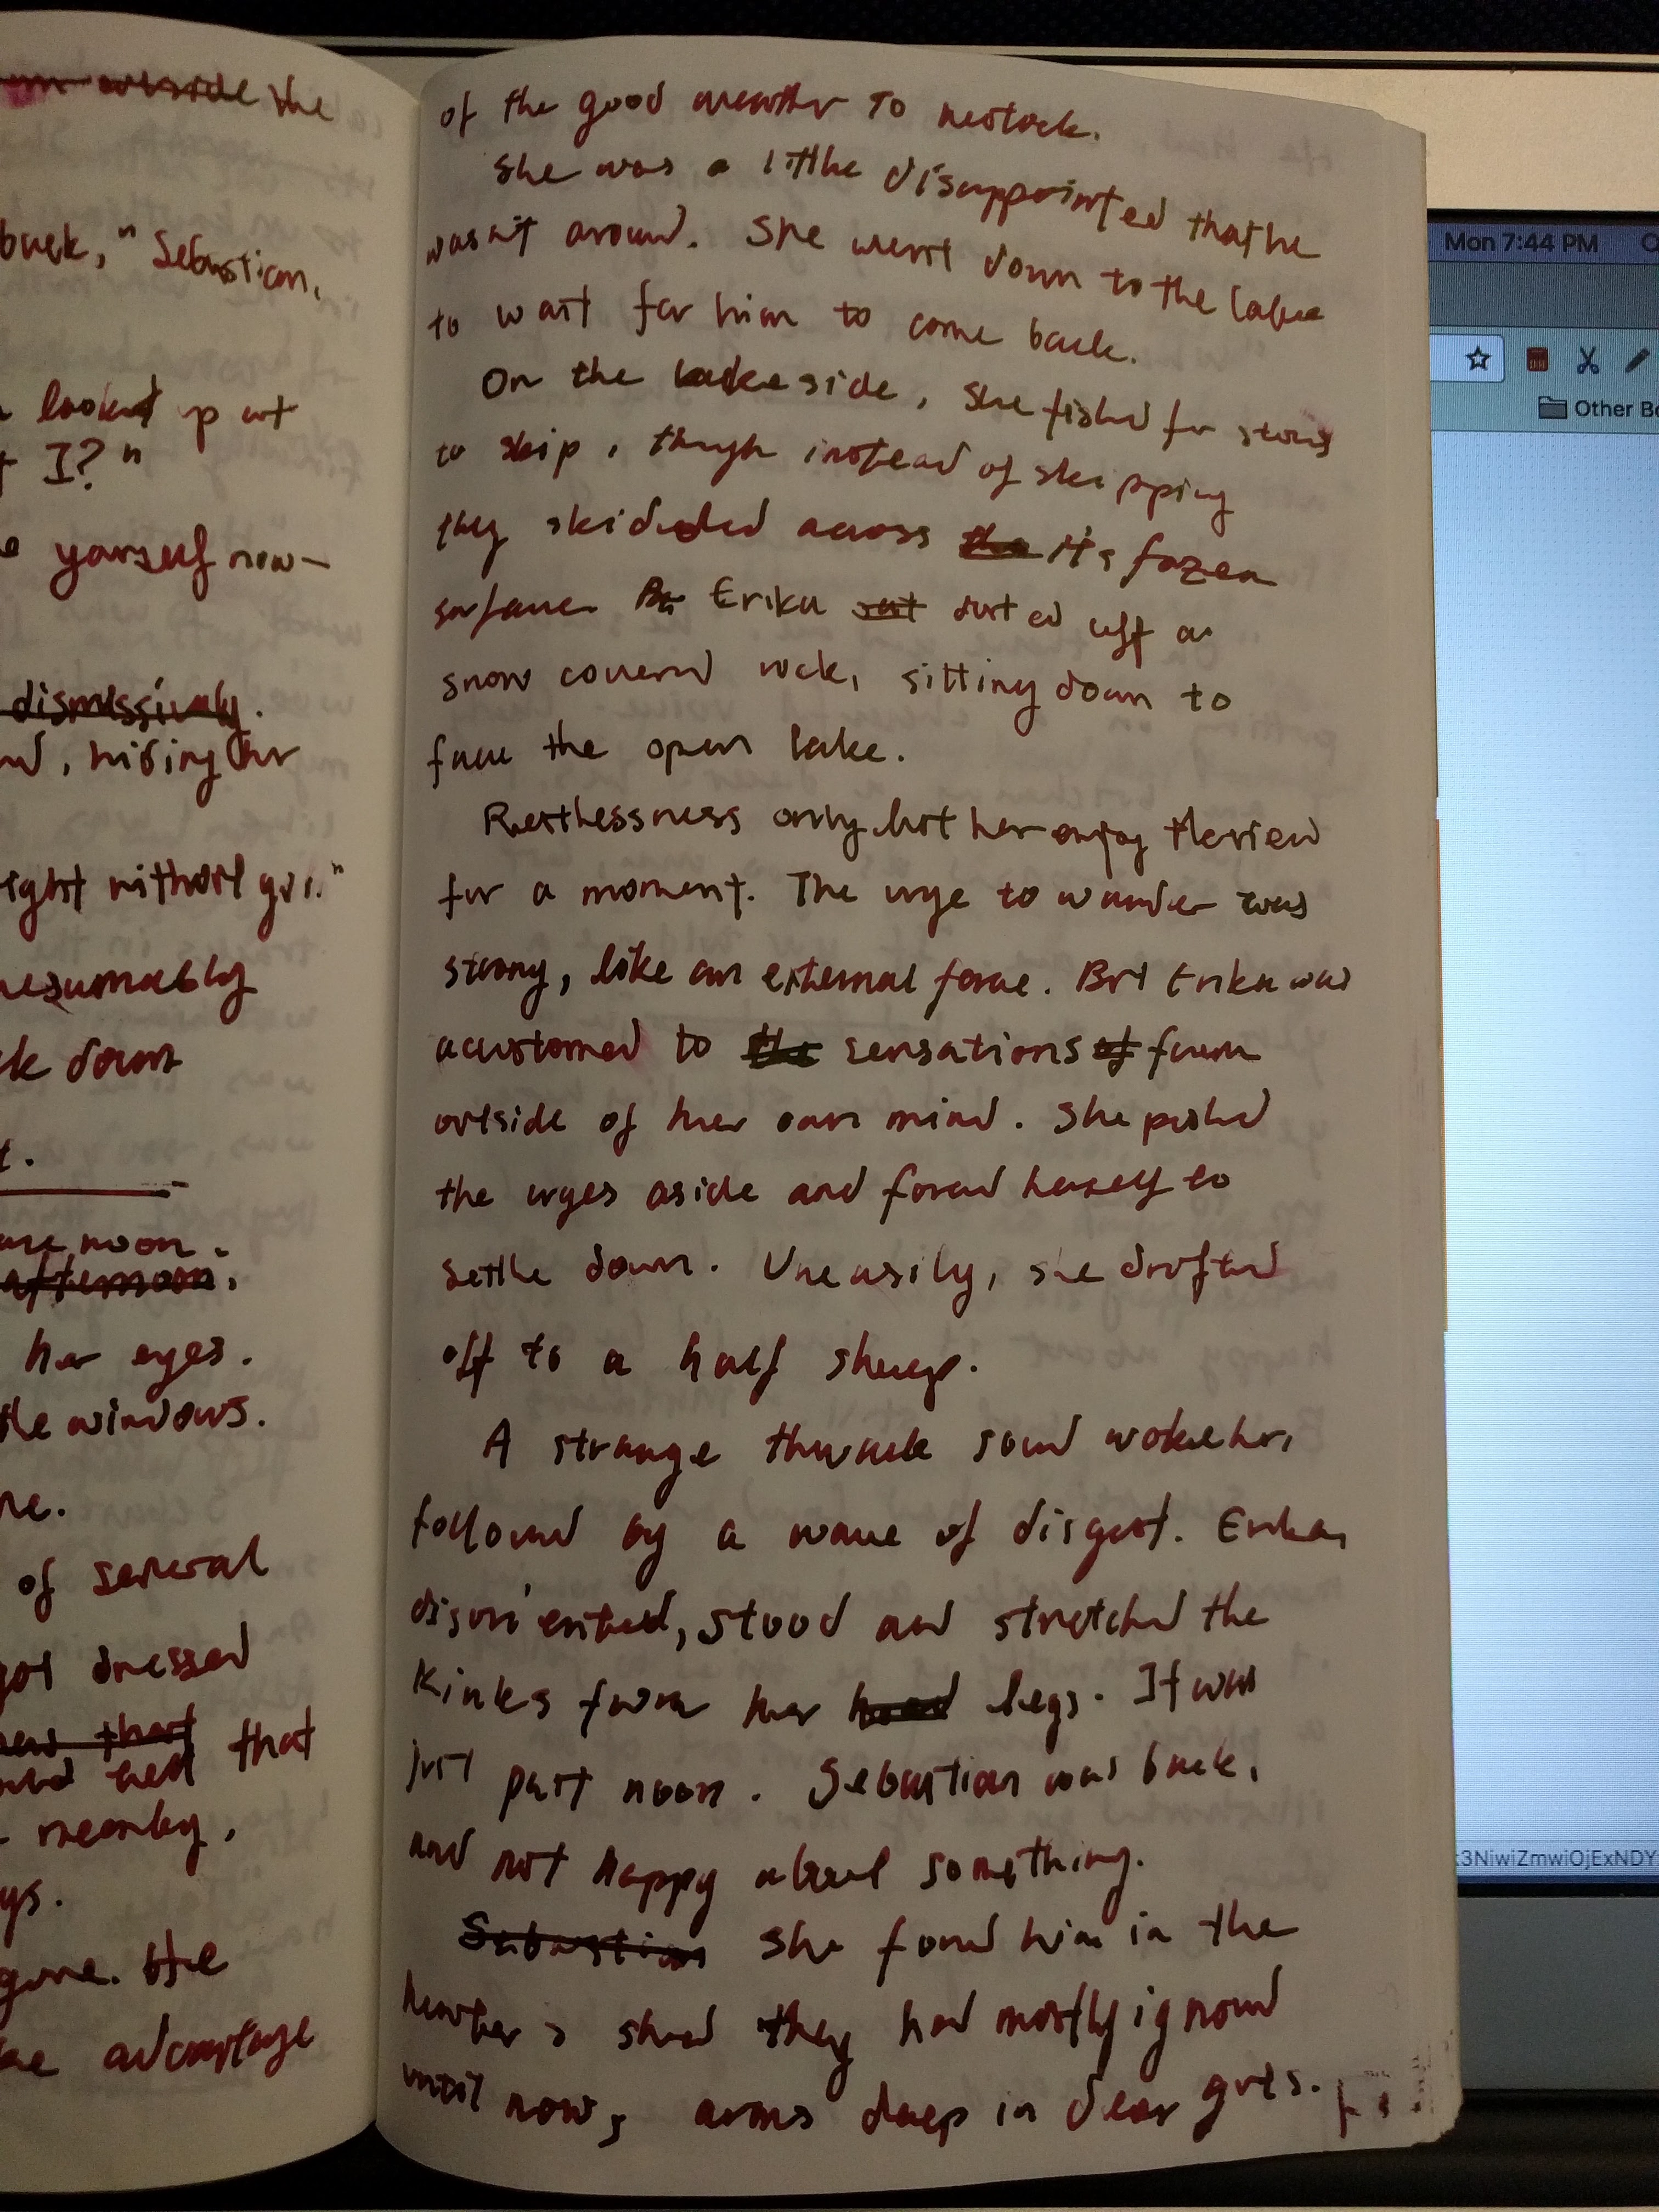 the
back," Sebastian,
looked up at
I?"
yourself now—
dismissively.
, hiding her
without
down
noon.
afternoon.
her eyes.
the windows.
of several
got dressed
that
that
nearby,
gone. He
advantage
of the good weather to restock.
She was a little disappointed that he
wasn't around. She went down to the lake
to wait for him to come back.
On the lakeside, she fished for stones
to skip, though instead of skipping
they skidded across the its frozen
surface. Erika sat dusted off a
snow covered rock, sitting down to
face the open lake.
Restlessness only let her enjoy the view
for a moment. The urge to wander was
strong, like an external force. But Erika was
acustomed to the sensations of from
outside of her own mind. She pushed
the urges aside and forced herself to
settle down. Uneasily, she drifted
off to a half sleep.
A strange thwack sound woke her,
followed by a wave of disgust. Erika,
disoriented, stood and stretched the
kinks from her head legs. It was
just past noon. Sebastian was back,
and not happy about something.
Sebastian She found him in the
hunter's shed they had mostly ignored
until now, arms deep in deer guts.
Mon 7:44 PM
Other Bo
3NiwiZmwiOjExNDY